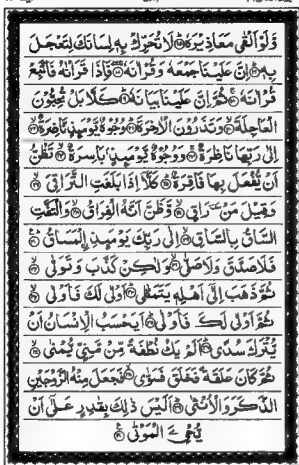 وَّلَوْ اَلْقٰى مَعَاذِيْرَهٗ ۝ لَا تُحَرِّكْ بِهٖ لِسَانَكَ لِتَعْجَلَ
بِهٖ ۝ اِنَّ عَلَيْنَا جَمْعَهٗ وَ قُرْاٰنَهٗ ۝ فَاِذَا قَرَاْنٰهُ فَاتَّبِعْ
قُرْاٰنَهٗ ۝ ثُمَّ اِنَّ عَلَيْنَا بَيَانَهٗ ۝ كَلَّا بَلْ تُحِبُّوْنَ
الْعَاجِلَةَ ۝ وَ تَذَرُوْنَ الْاٰخِرَةَ ۝ وُجُوْهٌ يَّوْمَىِٕذٍ نَّاضِرَةٌ ۝
اِلٰى رَبِّهَا نَاظِرَةٌ ۝ وَ وُجُوْهٌ يَّوْمَىِٕذٍۭ بَاسِرَةٌ ۝ تَظُنُّ
اَنْ يُّفْعَلَ بِهَا فَاقِرَةٌ ۝ كَلَّا اِذَا بَلَغَتِ التَّرَاقِيَ ۝
وَ قِيْلَ مَنْ رَاقٍ ۝ وَّ ظَنَّ اَنَّهُ الْفِرَاقُ ۝ وَ الْتَفَّتِ
السَّاقُ بِالسَّاقِ ۝ اِلٰى رَبِّكَ يَوْمَىِٕذِ ِ۟الْمَسَاقُ ۝
فَلَا صَدَّقَ وَ لَا صَلّٰى ۝ وَ لٰكِنْ كَذَّبَ وَ تَوَلّٰى ۝
ثُمَّ ذَهَبَ اِلٰى اَهْلِهٖ يَتَمَطّٰى ۝ اَوْلٰى لَكَ فَاَوْلٰى ۝
ثُمَّ اَوْلٰى لَكَ فَاَوْلٰى ۝ اَيَحْسَبُ الْاِنْسَانُ اَنْ
يُّتْرَكَ سُدًى ۝ اَلَمْ يَكُ نُطْفَةً مِّنْ مَّنِيٍّ يُّمْنٰى ۝
ثُمَّ كَانَ عَلَقَةً فَخَلَقَ فَسَوّٰى ۝ فَجَعَلَ مِنْهُ الزَّوْجَيْنِ
الذَّكَرَ وَ الْاُنْثٰى ۝ اَلَيْسَ ذٰلِكَ بِقٰدِرٍ عَلٰۤى اَنْ
يُّحْيِۦَ الْمَوْتٰى ۝